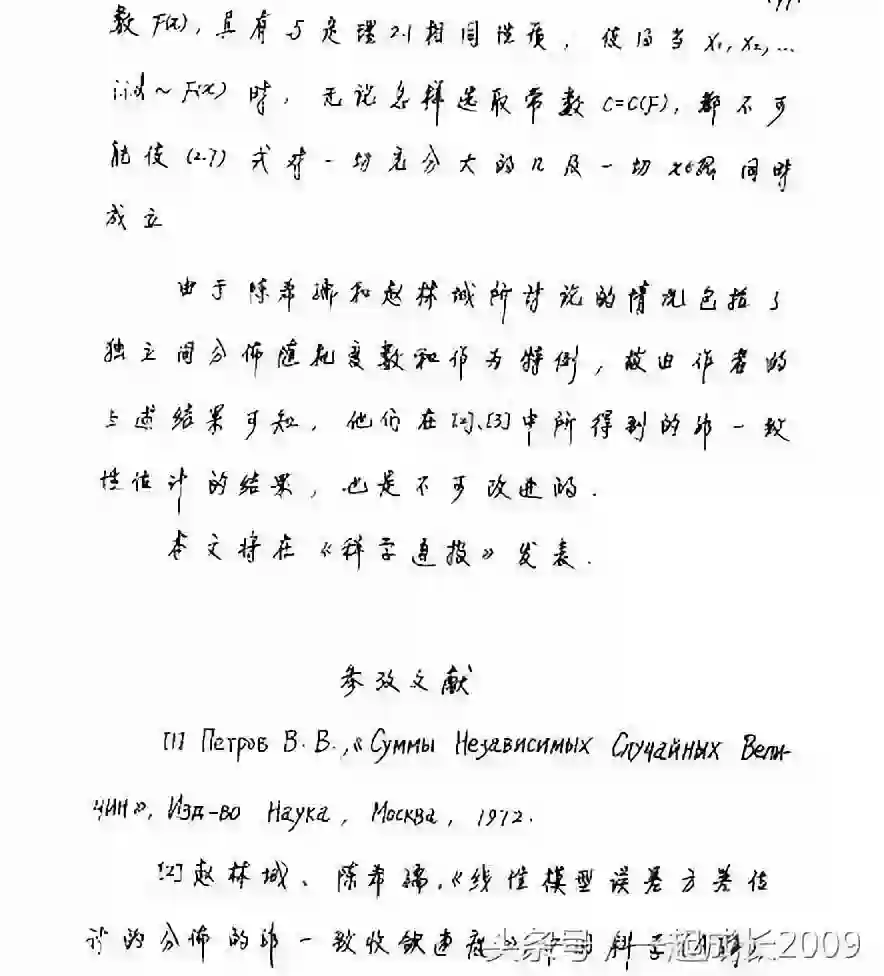 数 F(x), 具有与定理2.1相同性质, 使得当 X₁, X₂, …
i.i.d ~ F(x) 时, 无论怎样选取常数 C=C(F), 都不可
能使 (2.7) 式对一切充分大的 n 及一切 x∈ 同时
成立
由于陈希孺和赵林城所讨论的情况包括了
独立同分佈随机变数和作为特例, 故由作者的
上述结果可知, 他们在[2]、[3]中所得到的非一致
性估计的结果, 也是不可改进的.
本文将在《科学通报》发表.
参考文献
[1] Петров В. В., «Суммы Независимых Случайных Вели-
чин», Изд-во Наука, Москва, 1972.
[2] 赵林城、陈希孺,《线性模型误差方差估
计的分佈的非一致收敛速度》, 中国科学
头条号 一起成长2009